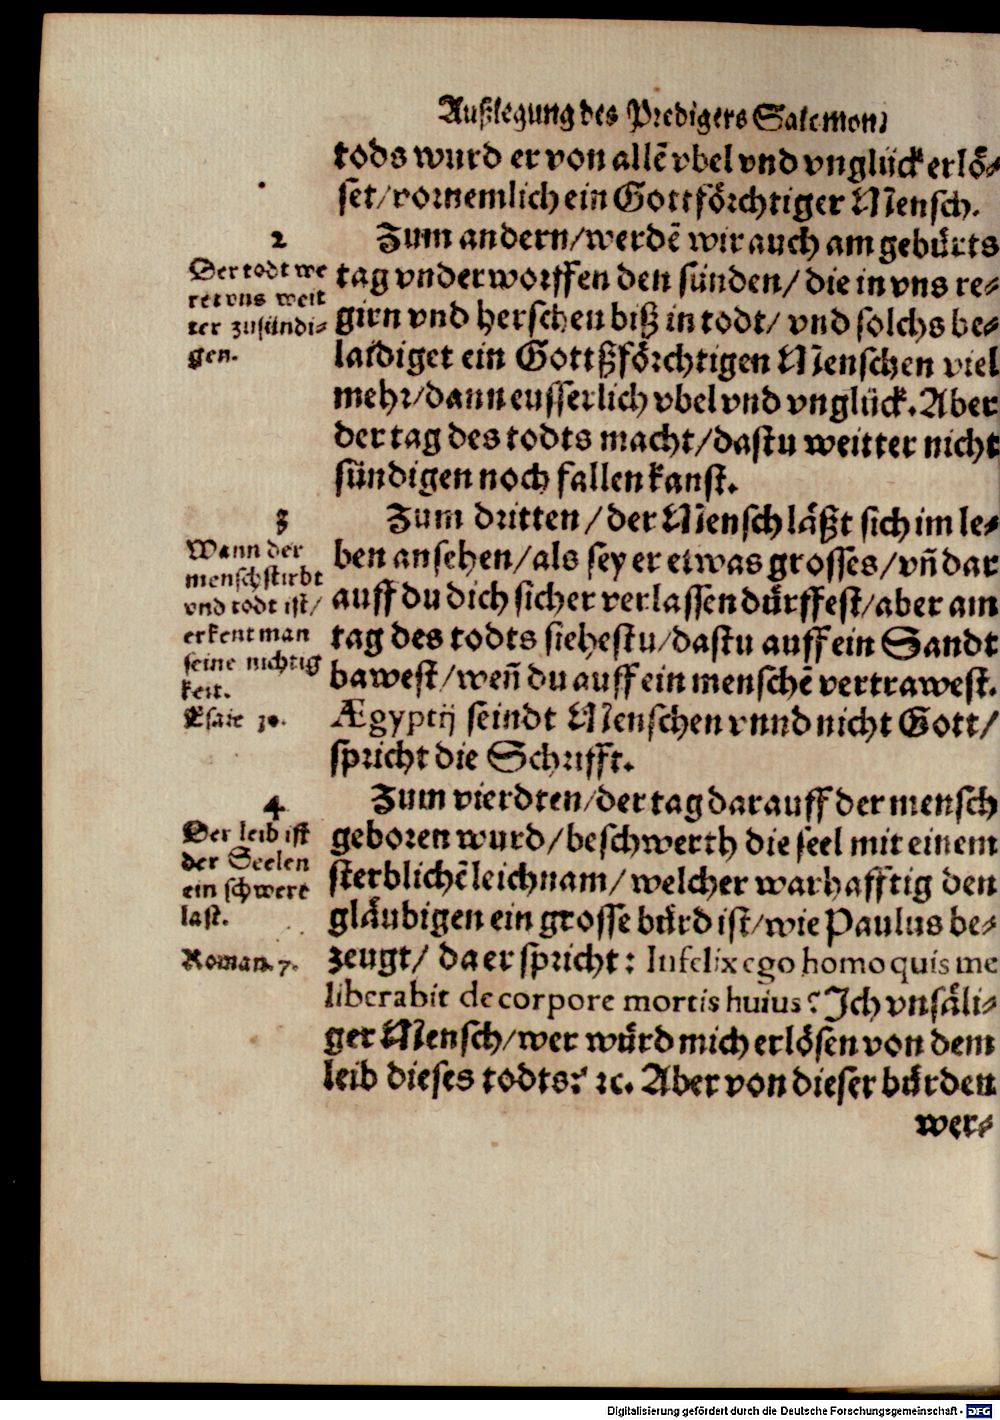 Außlegung des Predigers Salemon;
tods wurd er von allẽ vbel vnd vnglück erlö⸗
set/vornemlich ein Gottförchtiger Mensch.
2
Zum andern/werdẽ wir auch am gebůrts
Der todt we
ret vns weit
ter zusündi⸗
gen.
tag vnderworffen den sünden/ die in vns re⸗
girn vnd herschen biß in todt/ vnd solchs be⸗
laidiget ein Gottßförchtigen Menschen viel
mehr/dann eusserlich vbel vnd vnglück. Aber
der tag des todts macht/dastu weitter nicht
sündigen noch fallen kanst.
3
Zum dritten/der Mensch läßt sich im le⸗
Wann der
mensch stirbt
vnd todt ist/
erkent man
seine nichtig
keit.
Esaie 30.
ben ansehen/als sey er etwas grosses/vñ dar
auff du dich sicher verlassen dürffest/aber am
tag des todts siehestu/dastu auff ein Sandt
bawest/weñ du auff ein menschẽ vertrawest.
Ægyptij seindt Menschen vnnd nicht Gott/
spricht die Schrifft.
4
Zum vierdten/der tag darauff der mensch
Der leib ist
der Seelen
ein schwere
last.
Roman. 7.
geboren wurd/beschwerth die seel mit einem
sterblichẽ leichnam/welcher warhafftig den
gläubigen ein grosse bürd ist/wie Paulus be⸗
zeugt/ da er spricht: Infelix ego homo quis me
liberabit de corpore mortis huius? Ich vnsäli⸗
ger Mensch/wer würd mich erlösen von dem
leib dieses todts? ꝛc. Aber von dieser bürden
wer⸗
Digitalisierung gefördert durch die Deutsche Forschungsgemeinschaft - DFG